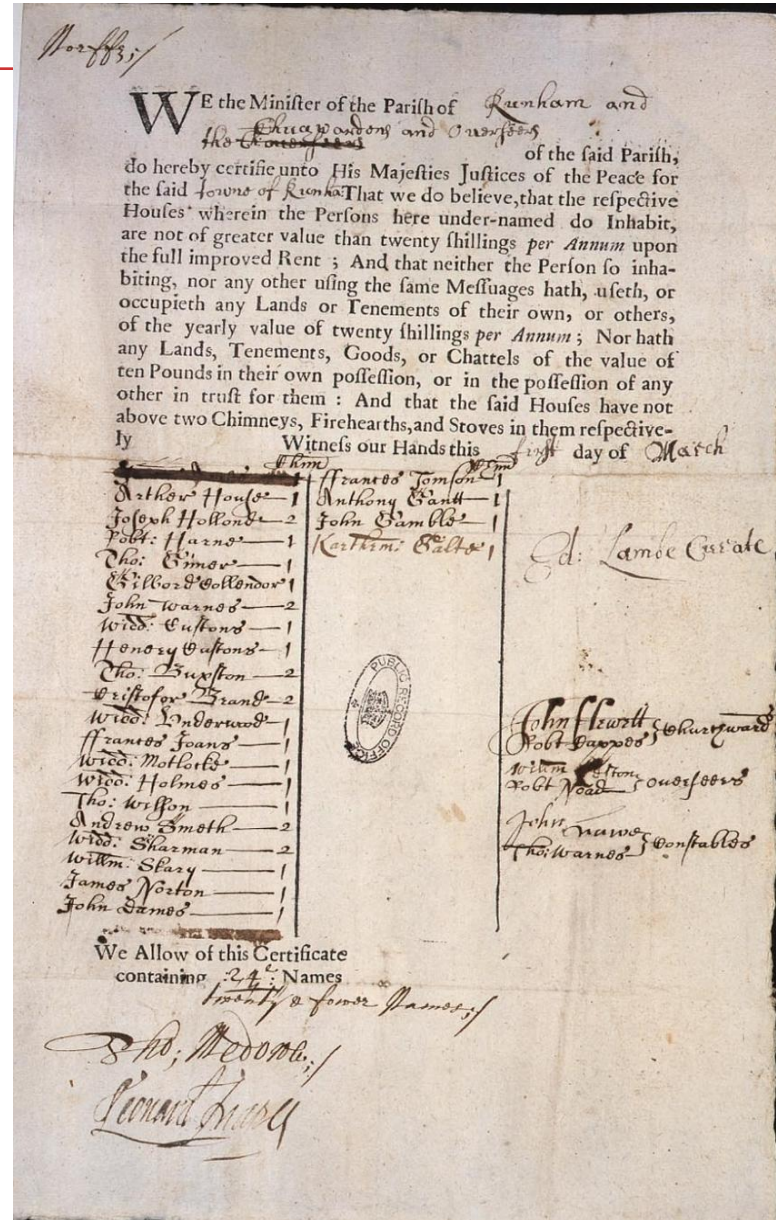 Norff:/
WE the Minister of the Parish of Runham and
the Chuawardens and Overseers
of the said Parish,
do hereby certifie unto His Majesties Justices of the Peace for
the said Towne of Runha: That we do believe, that the respective
Houses wherein the Persons here under-named do Inhabit,
are not of greater value than twenty shillings per Annum upon
the full improved Rent ; And that neither the Person so inha-
biting, nor any other using the same Messuages hath, useth, or
occupieth any Lands or Tenements of their own, or others,
of the yearly value of twenty shillings per Annum ; Nor hath
any Lands, Tenements, Goods, or Chattels of the value of
ten Pounds in their own possession, or in the possession of any
other in trust for them : And that the said Houses have not
above two Chimneys, Firehearths, and Stoves in them respective-
ly Witness our Hands this first day of March
Chim
Arther House 1
Joseph Hollond 2
Robt: Harne 1
Tho: Gimer 1
Gilbord Collendor 1
John Warnes 2
Widd: Eustons 1
Henery Eustons 1
Tho: Buxston 2
Cristofer Brand 2
Widd: Underwood 1
ffrances Joans 1
Widd: Motlocke 1
Widd: Holmes 1
Tho: Wilson 1
Andrew Smeth 2
Widd: Sharman 2
Willm: Skary 1
James Norton 1
John Dames 1
Chim
ffrances Tomson 1
Anthony Gantt 1
John Gamble 1
Galte 1
Ed: Lambe Curate
John Hewett
Robt Cappes Churchward
Willm
Robt Noad Overseers
John
Tho: Warnes Constables
PUBLIC RECORD OFFICE
We Allow of this Certificate
containing :24: Names
twenty & fower Names:/
Tho; Medowe:/
Leonard